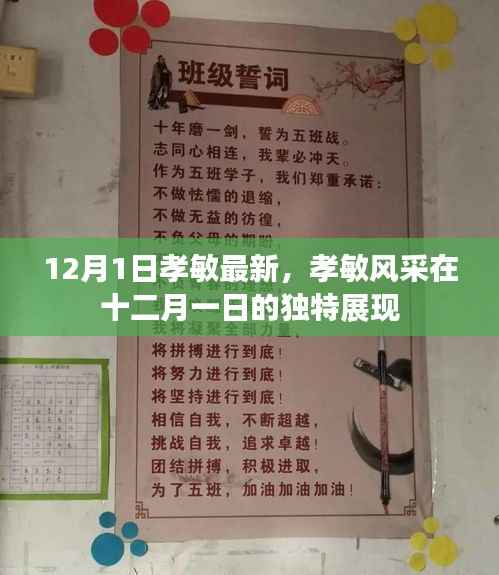 班级誓词
十年磨一剑，誓为五班战。
志同心相连，我辈必冲天。
作为五班学子，我们郑重承诺：
不做怯懦的退缩，
不做无益的彷徨，
不负父母的期盼，
12月1日孝敏最新，孝敏风采在
十二月一日的独特展现
我将凝聚全部力量，
将拼搏进行到底！
将努力进行到底！
将坚持进行到底！
相信自我，不断超越，
挑战自我，追求卓越！
团结拼搏，积极进取，
为了五班，加油加油加油！